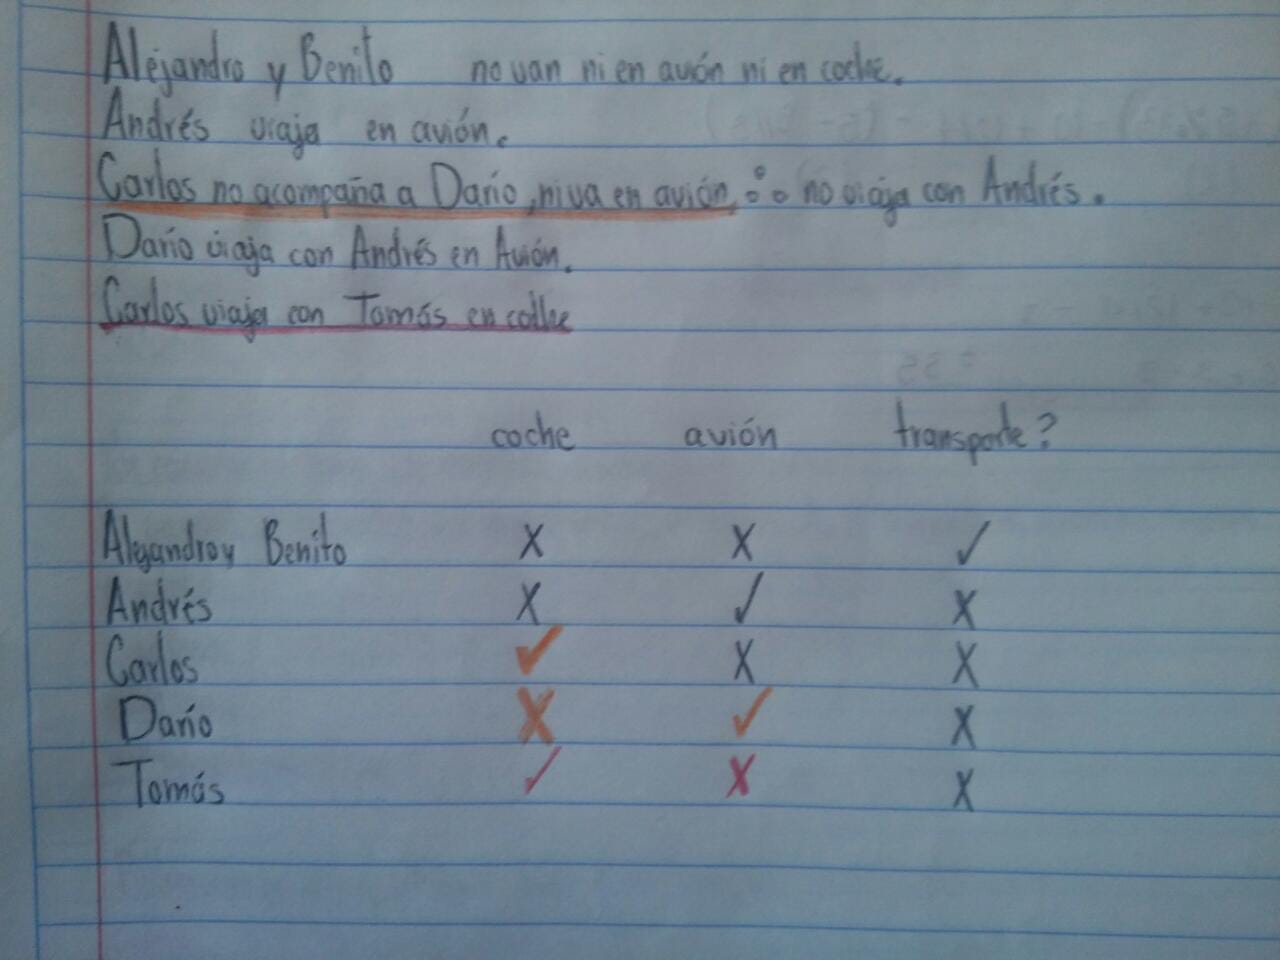 Alejandro y Benito no van ni en avión ni en coche.
Andrés viaja en avión.
Carlos no acompaña a Darío, ni va en avión, ∴ no viaja con Andrés.
Darío viaja con Andrés en Avión.
Carlos viaja con Tomás en coche
coche avión transporte?
Alejandro y Benito X X ✓
Andrés X ✓ X
Carlos ✓ X X
Darío X ✓ X
Tomás ✓ X X